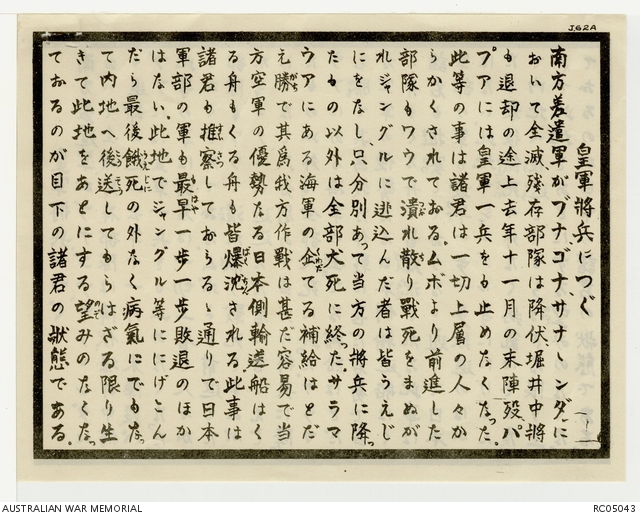 J.62A
皇軍將兵につぐ (一)
南方差遣軍がブナゴナ、サナヽンダに
おいて全滅、殘存部隊は降伏堀井中將
も退却の途上去年十一月の末陣歿、パ
プアには皇軍一兵をも止めなくなつた。
此等の事は諸君は一切上層の人々か
らかくされておる。ムボより前進した
部隊もワウで潰れ散り戰死をまぬが
れジャングルに逃込んだ者は皆うえじ
にをなし、只分別あつて当方の將兵に降つ
たもの以外は全部犬死に終つた。サラマ
ウアにある海軍の企てる補給はとだ
え勝で其爲我方作戰は甚だ容易で当
方空軍の優勢なる日本側輸送船はく
る舟もくる舟も皆爆沈される。此事は
諸君も推察しておらるゝ通りで日本
軍部の軍も最早一歩一歩敗退のほか
はない。此地でジャングル等ににげこん
だら最後餓死の外なく病氣にでもなつ
て内地へ後送してもらはざる限り生
きて此地をあとにする望みのなくなつ
ておるのが目下の諸君の狀態である。
AUSTRALIAN WAR MEMORIAL
RC05043